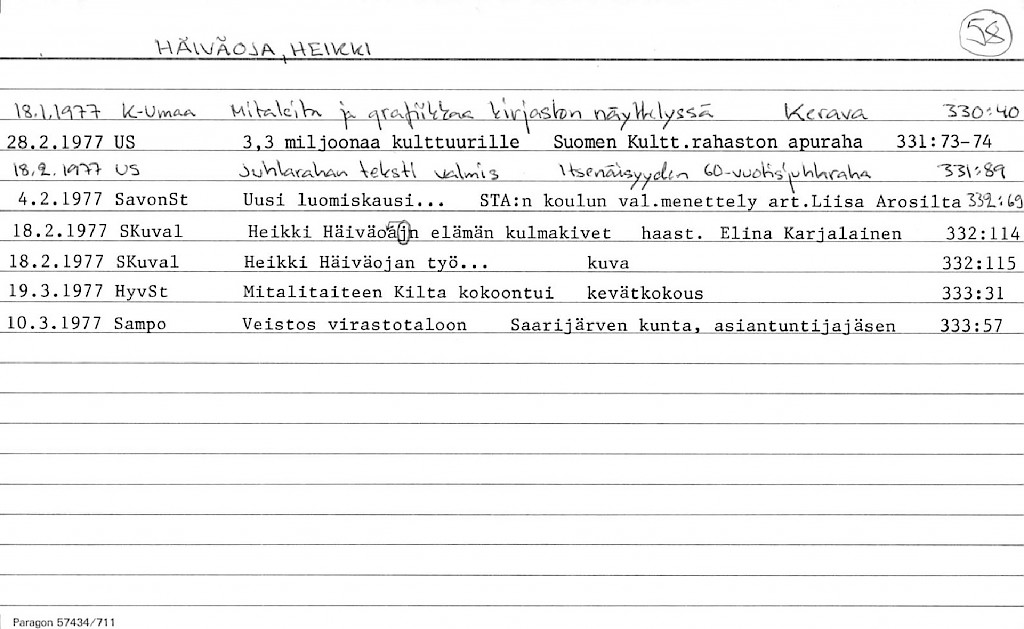 58
HÄIVÄOJA, HEIKKI
18.1.1977 K-Umaa Mitaleita ja grafiikkaa kirjaston näyttelyssä Kerava 330:40
28.2.1977 US 3,3 miljoonaa kulttuurille Suomen Kultt.rahaston apuraha 331:73-74
18.2.1977 US Juhlarahan teksti valmis Itsenäisyyden 60-vuotisjuhlaraha 331:89
4.2.1977 SavonSt Uusi luomiskausi... STA:n koulun val.menettely art.Liisa Arosilta 332:69
18.2.1977 SKuval Heikki Häiväoäjn elämän kulmakivet haast. Elina Karjalainen 332:114
18.2.1977 SKuval Heikki Häiväojan työ... kuva 332:115
19.3.1977 HyvSt Mitalitaiteen Kilta kokoontui kevätkokous 333:31
10.3.1977 Sampo Veistos virastotaloon Saarijärven kunta, asiantuntijajäsen 333:57
Paragon 57434/711